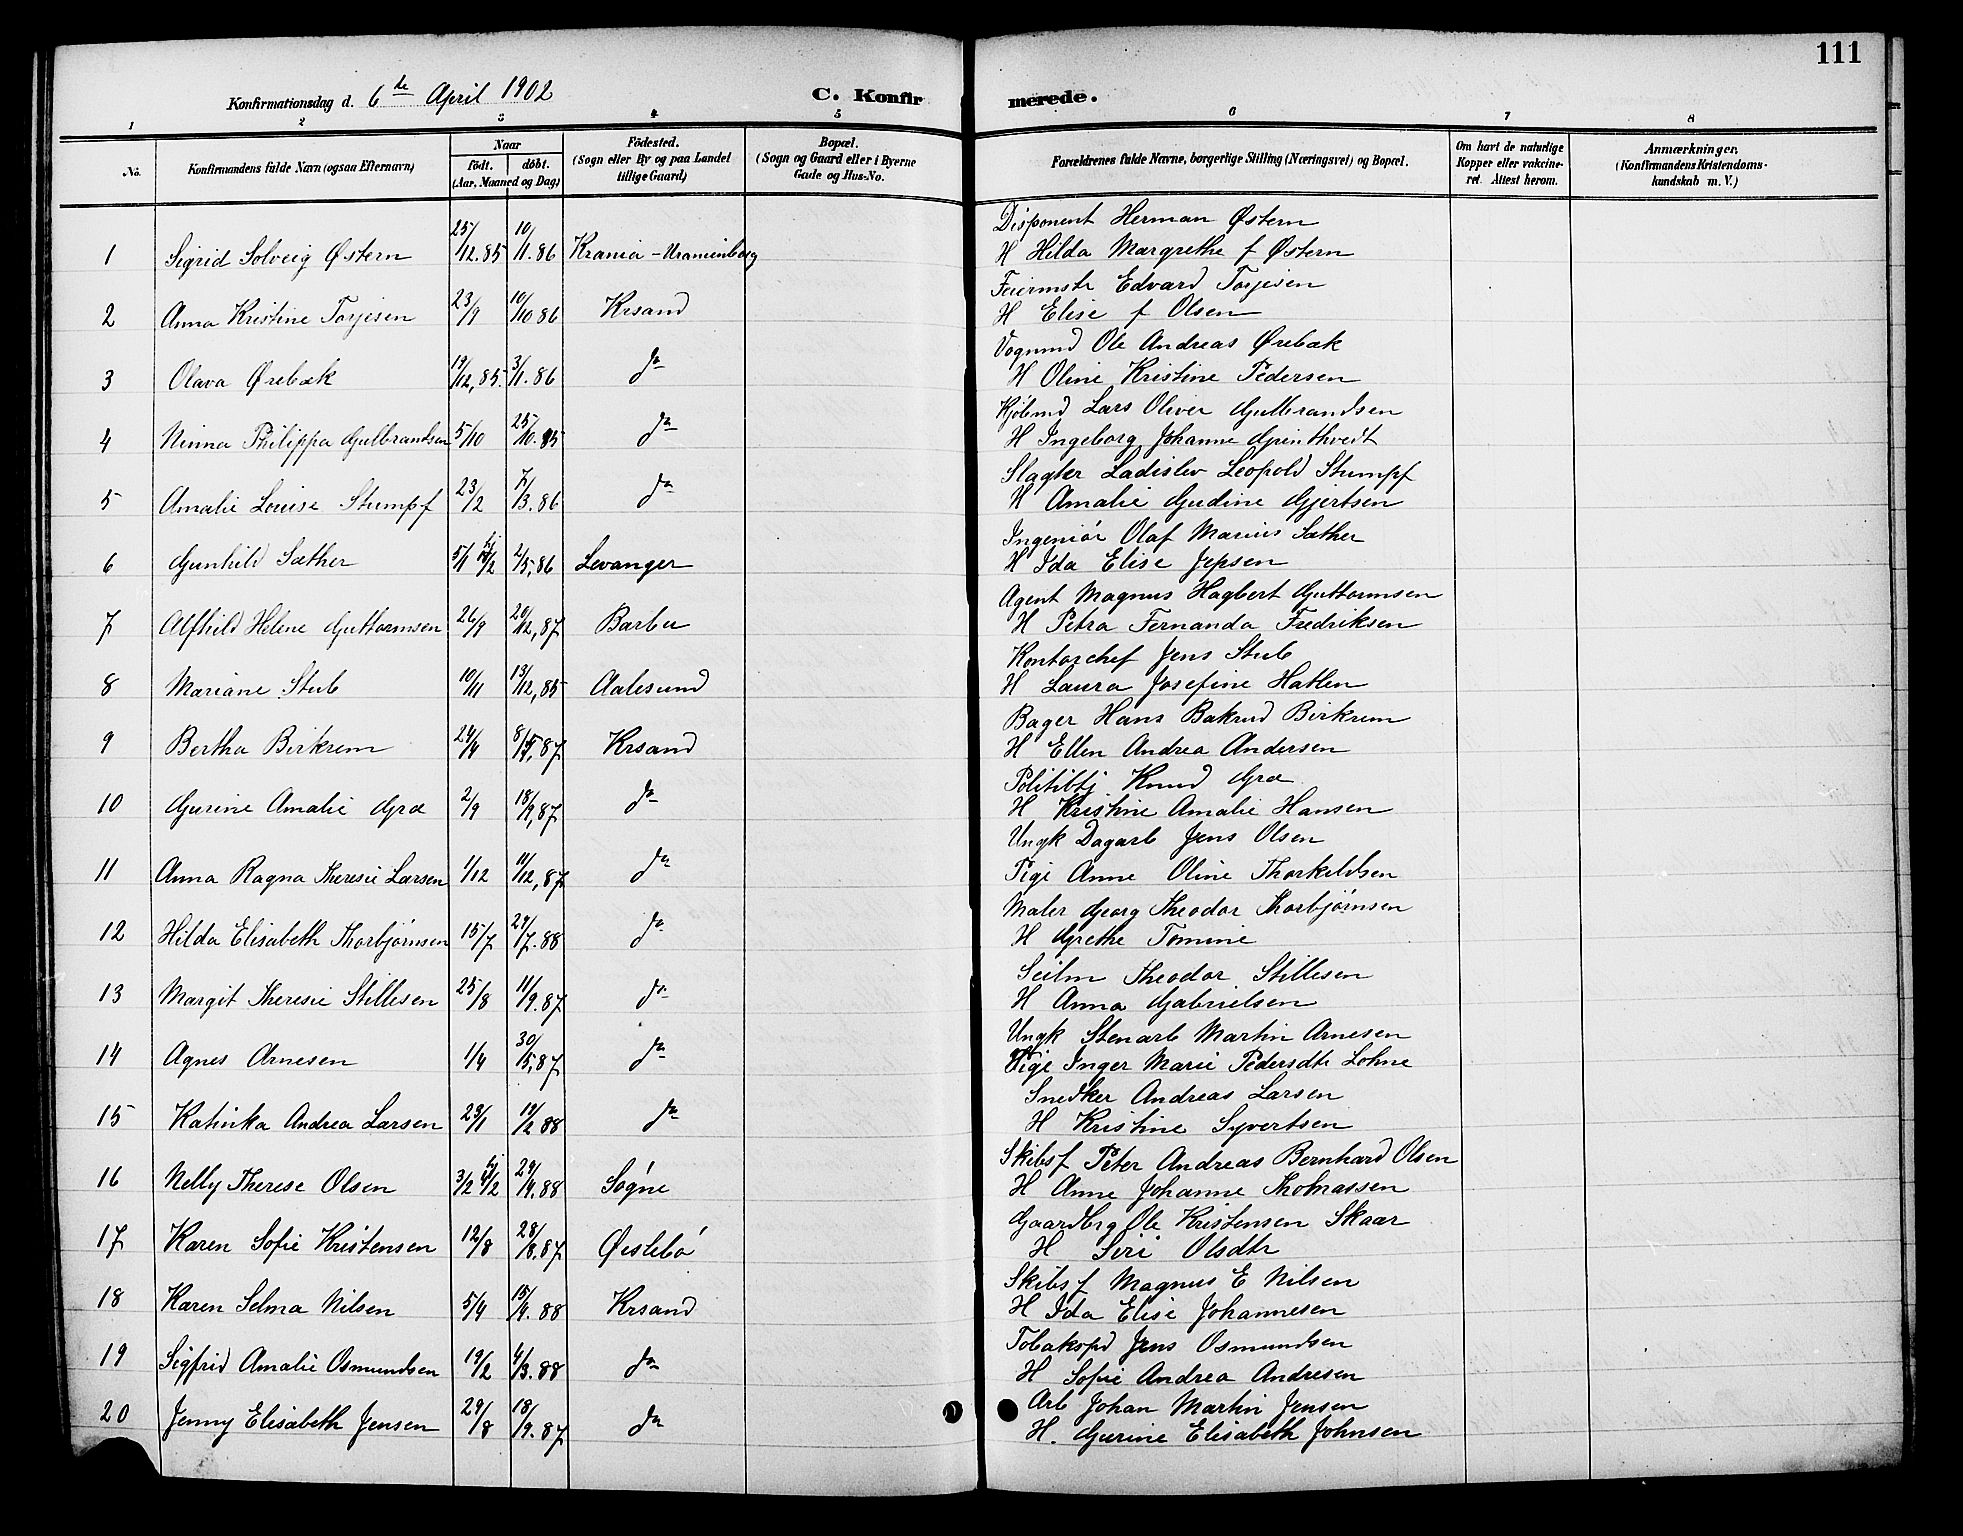 111
Konfirmationsdag d. 6te April 1902 C. Konfir merede.
1 2 3 4 5 6 7 8
No. Konfirmandens fulde Navn (ogsaa Efternavn) Naar födt. döbt. (Aar, Maaned og Dag) Födested. (Sogn eller By og paa Landet tillige Gaard) Bopæl. (Sogn og Gaard eller i Byerne Gade og Hus-No. Forældrenes fulde Navne, borgerlige Stilling (Næringsvei) og Bopæl. Om havt de naturlige Kopper eller vaccineret. Attest herom. Anmærkninger. (Konfirmandens Kristendomskundskab m. V.)
1 Sigrid Solveig Østern 25/12.85 10/1.86 Krania - Uranienborg Disponent Herman Østern
H Hilda Margrethe f Østern
2 Anna Kristine Torjesen 23/9 10/10 86 Krsand Feiermstr Edvard Torjesen
H Elise f Olsen
3 Olava Ørebæk 19/12,85. 3/1.86 do Vognmd Ole Andreas Ørebæk
H Oline Kristine Pedersen
4 Ninna Philippa Gulbrandsen 5/10 25/10.85 do Kjøbmd Lars Oliver Gulbrandsen
H Ingeborg Johanne Grinthvedt
5 Amalie Louise Stumpf 23/2 7/3.86 do Slagter Ladislev Leopold Stumpf
H Amalie Gudine Gjertsen
6 Gunhild Sæther 5/1 2/5,86 Levanger Ingeniør Olaf Marius Sæther
H Ida Elise Jepsen
7 Alfhild Helene Guttormsen 26/9 20/12,87 Barbu Agent Magnus Hagbert Guttormsen
H Petra Fernanda Fredriksen
8 Mariane Stub 10/11 13/12,85 Aalesund Kontorchef Jens Stub
H Laura Josefine Hatlen
9 Bertha Birkrem 24/4 87 Krsand Bager Hans Bakrud Birkrem
H Ellen Andrea Andersen
10 Gurine Amalie Græ 2/9 18/9,87 do Politibtj. Knud Græ
H Kristine Amalie Hansen
11 Anna Ragna Theresie Larsen 1/12 11/12,87 do Ungk Dagarb Jens Olsen
Pige Anne Oline Thorkildsen
12 Hilda Elisabeth Thorbjørnsen 15/7 29/7.88 do Maler Georg Theodor Thorbjørnsen
H Grethe Tomine
13 Margit Theresie Stillesen 25/8 11/9.87 do Seilm Theodor Stillesen
H Anna Gabrielsen
14 Agnes Arnesen 1/4 30/5,87 do Ungk Stenarb Martin Arnesen
Pige Inger Marie Pedersdtr Lohne
15 Kathinka Andrea Larsen 23/1 19/2 88 do Snedker Andreas Larsen
H Kristine Syvertsen
16 Nelly Therese Olsen 3/2 29/4.88 Søgne Skibsf Peter Andreas Bernhard Olsen
H Anne Johanne Thomassen
17 Karen Sofie Kristensen 12/8 28/8,87 Øislebø Gaardbrg Ole Kristensen Skaar
H Siri Olsdtr
18 Karen Selma Nilsen 5/4 15/4.88 Krsand Skibsf Magnus E Nilsen
H Ida Elise Johannesen
19 Sigfrid Amalie Osmundsen 19/2 4/3.88 do Tobakspd Jens Osmundsen
H Sofie Andrea Andresen
20 Jenny Elisabeth Jensen 29/8 18/9.87 do Arb Johan Martin Jensen
H. Gurine Elisabeth Johnsen